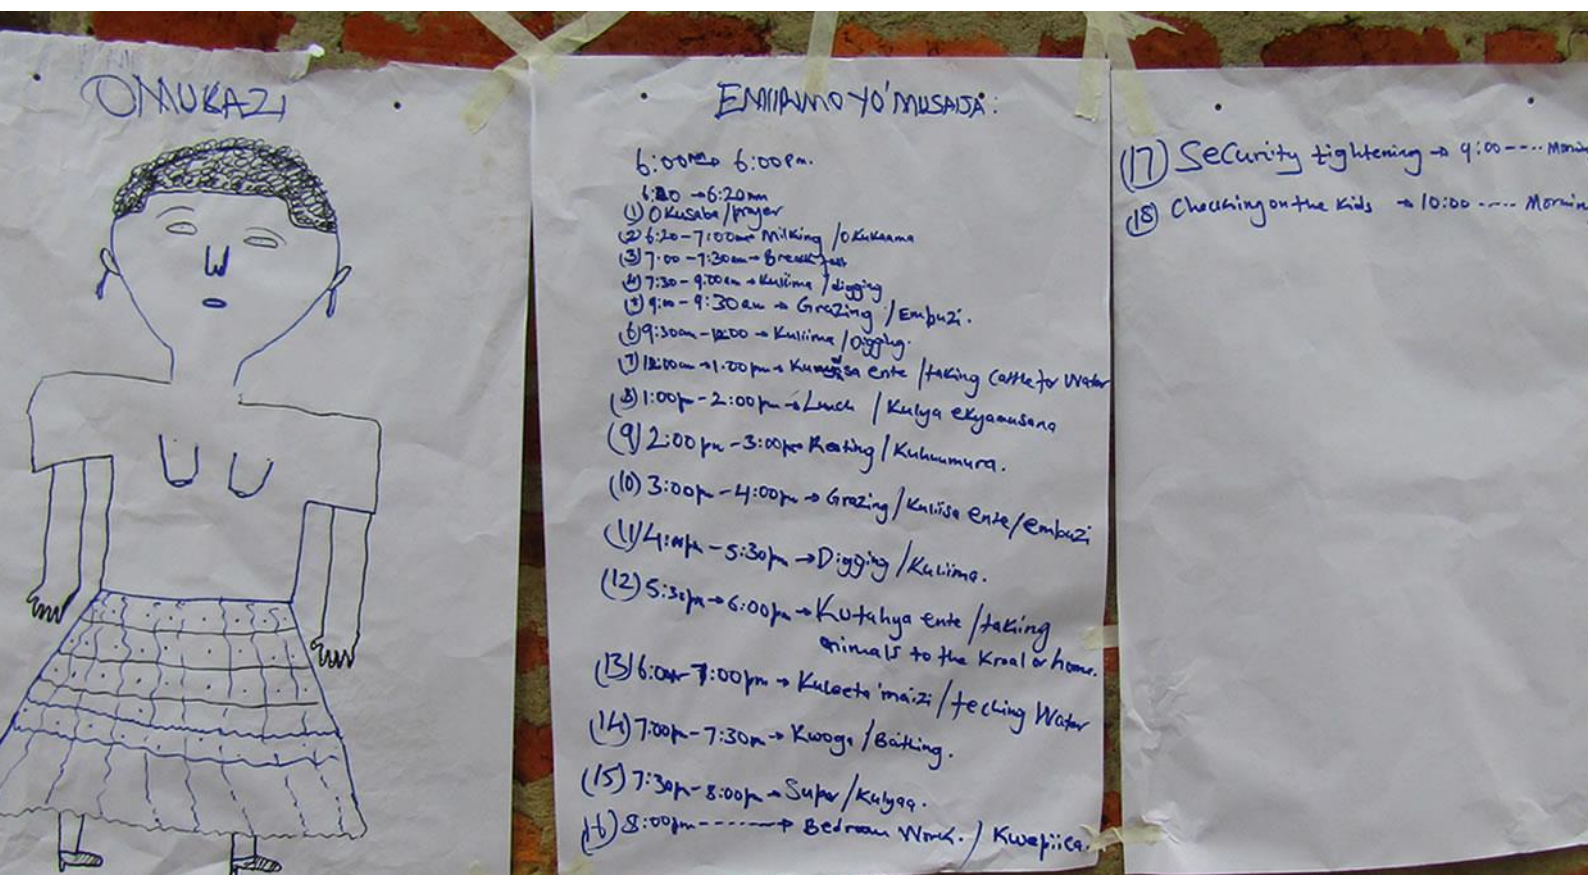 OMUKAZI
EMIIRIMO YO'MUSAIJA:
6:00am → 6:00pm.
6:00 → 6:20am
(1) Okusaba/prayer
(2) 6:20-7:00am → Milking /Okukaama
(3) 7:00-7:30am → Breakfast
(4) 7:30-9:00am → Kuliima /digging
(5) 9:00-9:30am → Grazing /Embuzi.
(6) 9:30am-12:00 → Kuliima/Digging.
(7) 12:00am → 1:00pm → ente /taking Cattle for Water
(8) 1:00pm-2:00pm → Lunch / Kulya ekyamusana
(9) 2:00pm-3:00pm → Resting/Kuhuumura.
(10) 3:00pm-4:00pm → Grazing/Kuliisa ente/embuzi
(11) 4:00pm-5:30pm → Digging/Kuliima.
(12) 5:30pm → 6:00pm → Kutahya ente/taking
animals to the Kraal or home.
(13) 6:00-7:00pm → Kuleeta 'maizi/feching Water
(14) 7:00pm-7:30pm → Kwoga/Baithing.
(15) 7:30pm-8:00pm → Super/Kulyaa.
(16) 8:00pm -------→ Bedroom Work./ Kwepiica.
(17) Security tightening → 9:00 ---- Mornin
(18) Checking on the kids → 10:00 ---- Mornin